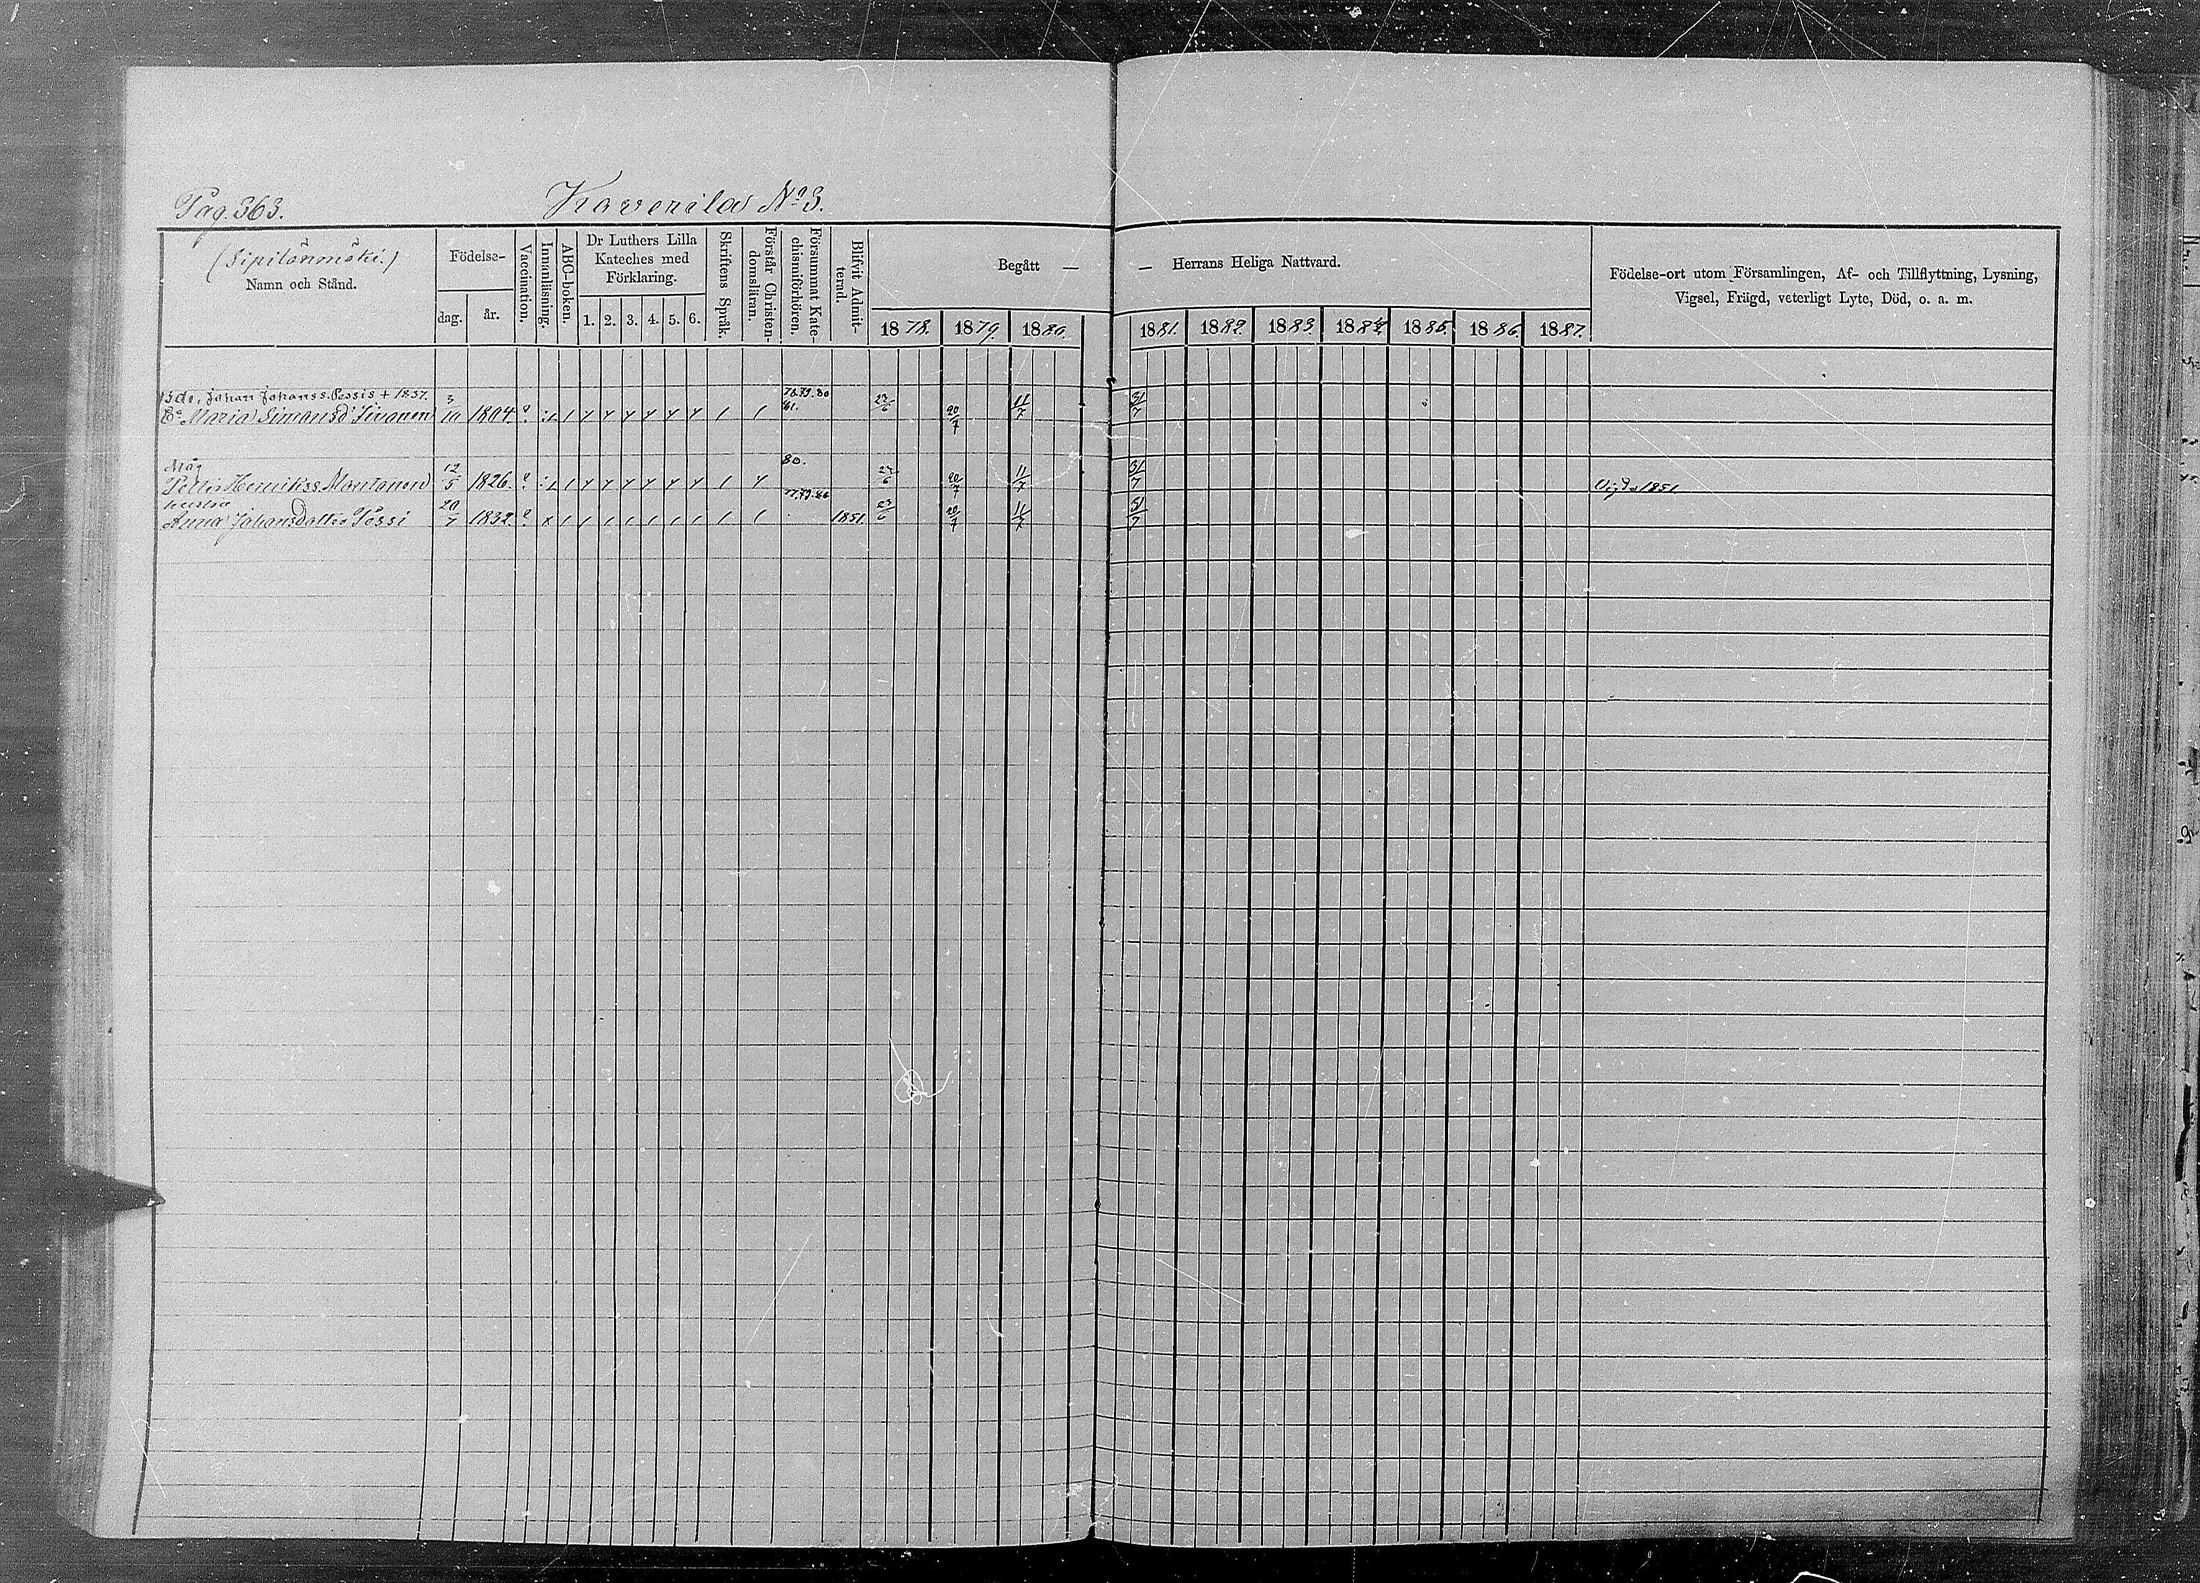 Pag. 363. Kaverila No 3.
(Sipilänmäki.)
Namn och Stånd.
Födelse-
dag. år.
Vaccination.
Innanläsning.
ABC-boken.
Dr Luthers Lilla
Kateches med
Förklaring.
1. 2. 3. 4. 5. 6.
Skriftens Språk.
Förstår Christen-
domsläran.
Försummat Kate-
chismiförhören.
Blifvit Admit-
terad.
Begått — — Herrans Heliga Nattvard.
1878. 1879. 1880. 1881. 1882. 1883. 1884. 1885. 1886. 1887.
Födelse-ort utom Församlingen, Af- och Tillflyttning, Lysning,
Vigsel, Frägd, veterligt Lyte, Död, o. a. m.
Bde, Johan Johanss. Pessis + 1857. 78.79.80
Maria Simonsd 3/10 1804. 81. 20/7 11/7 31/7
Måg 80.
Petter Henrikss. Montonen 12/5 1826. 20/7 11/7 31/7 Vigd 1851.
hustru
Anna Johansdotter Pessi 20/7 1832. 1851. 23/6 20/7 11/7 31/7